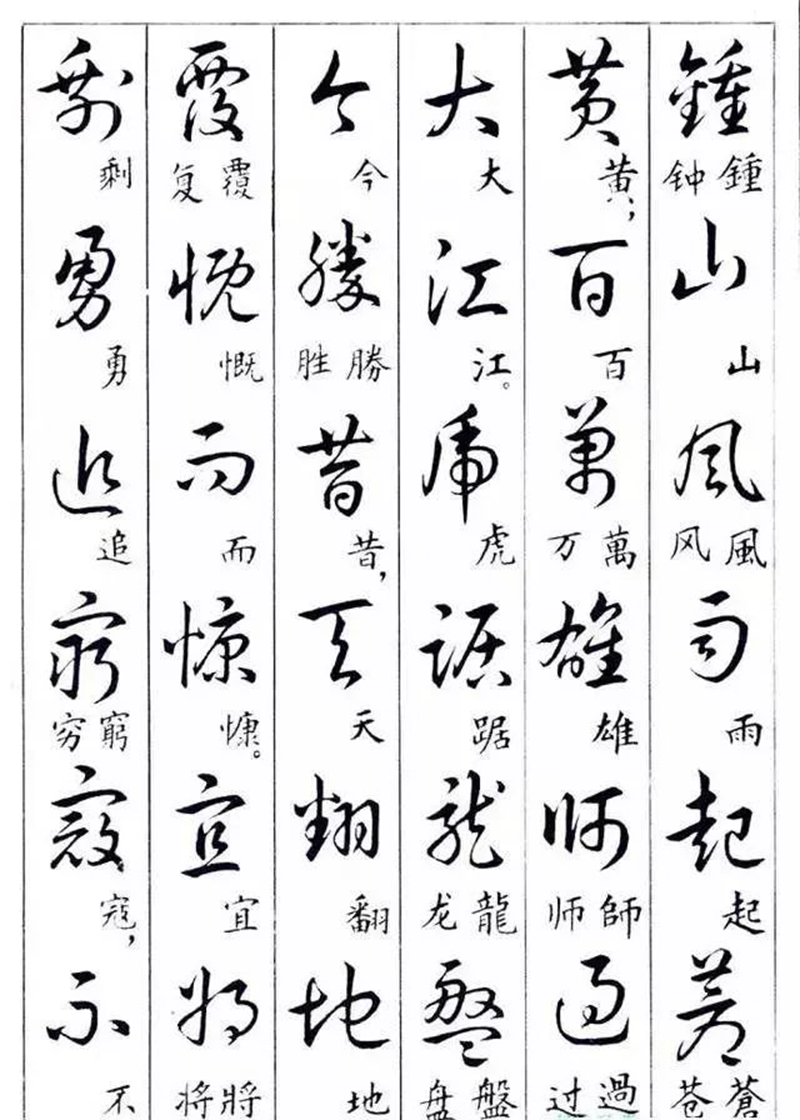 鍾 钟鍾 山 山 風 风風 雨 雨 起 起 蒼 苍蒼
黄 黄, 百 百 萬 万萬 雄 雄 師 师師 過 过過
大 大 江 江。 虎 虎 踞 踞 龍 龙龍 盤 盘盤
今 今 勝 胜勝 昔 昔, 天 天 翻 翻 地 地
覆 复覆 慨 慨 而 而 慷 慷。 宜 宜 將 将將
剩 剩 勇 勇 追 追 窮 穷窮 寇 寇, 不 不